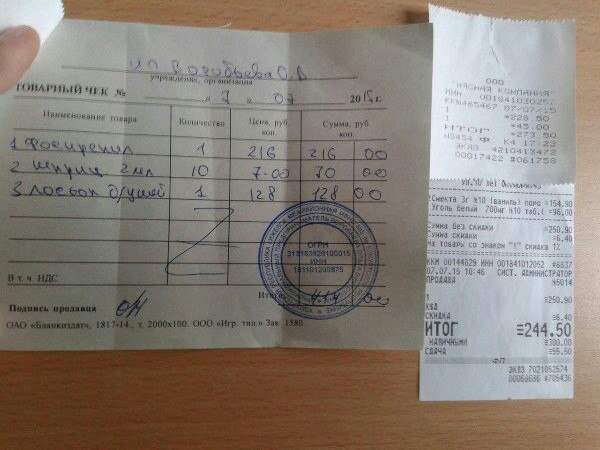 ИП Воробьева О.А
учреждение, организация
ТОВАРНЫЙ ЧЕК № « 7 » 07 2015 г.
Наименование товара Количество Цена, руб. коп. Сумма, руб. коп.
1 Фоспренил 1 216 216 00
2 шприц 2 мл 10 7-00 70 00
3 Лосьон д/ушей 1 128 128 00
В т. ч. НДС
Итого: 414 00
Подпись продавца
ОАО «Бланкиздат», 1817-14., т. 2000х100. ООО «Игр. тип.» Зак. 1580
ОГРН
ИНН
ООО
"МЯСНАЯ КОМПАНИЯ"
07/07/15
1 =228.50
1 =45.00
ИТОГ =273.50
17:22
ЭКЛЗ 4210413472
00017422 #061758
Смекта 3г №10 (ваниль) поро =154.90
Уголь белый 700мг №10 таб.( =96.00
Сумма без скидки =250.90
Сумма скидки =6.40
На товары со знаком "!" скидка 12
ККМ 00144829 ИНН 001841012052 #6837
07.07.15 10:46 СИСТ. АДМИНИСТРАТОР
ПРОДАЖА №5014
1 =250.90
СКИДКА =6.40
ИТОГ =244.50
НАЛИЧНЫМИ =300.00
СДАЧА =55.50
ЭКЛЗ 7021062574